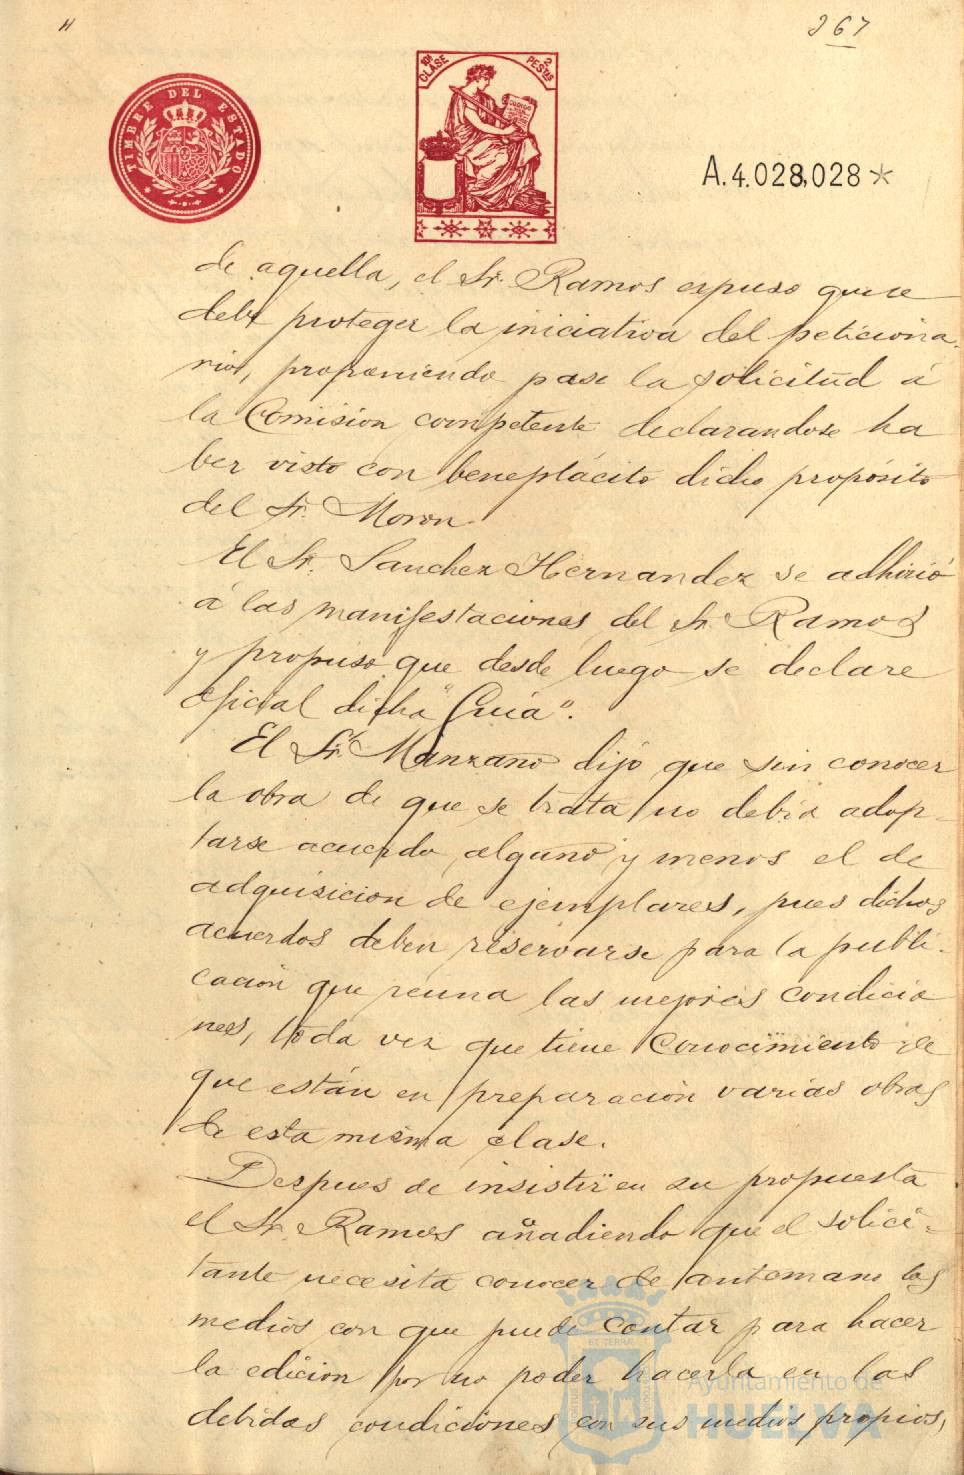 267
TIMBRE DEL ESTADO
10ª CLASE 2 PESTAS
CODIGO
A.4.028,028*
de aquella, el Sr. Ramos expuso que se
debe proteger la iniciativa del peticiona-
rio, proponiendo pase la solicitud á
la Comisión competente declarandose ha
ber visto con beneplácito dicho propósito
del Sr. Moron.
El Sr. Sanchez Hernandez se adhirió
á las manifestaciones del Sr. Ramos
y propuso que desde luego se declare
oficial dicha "Guia".
El Sr. Manzano dijo que sin conocer
la obra de que se trata no debia adop-
tarse acuerdo alguno y menos el de
adquisicion de ejemplares, pues dichos
acuerdos deben reservarse para la publi-
cación que reuna las mejores condicio
nes, toda vez que tiene conocimiento de
que están en preparación varias obras
de esta misma clase.
Despues de insistir en su propuesta
el Sr. Ramos añadiendo que el solici-
tante necesita conocer de antemano los
medios con que puede contar para hacer
la edicion por no poder hacerla en las
debidas condiciones con sus medios propios,
Ayuntamiento de
HUELVA